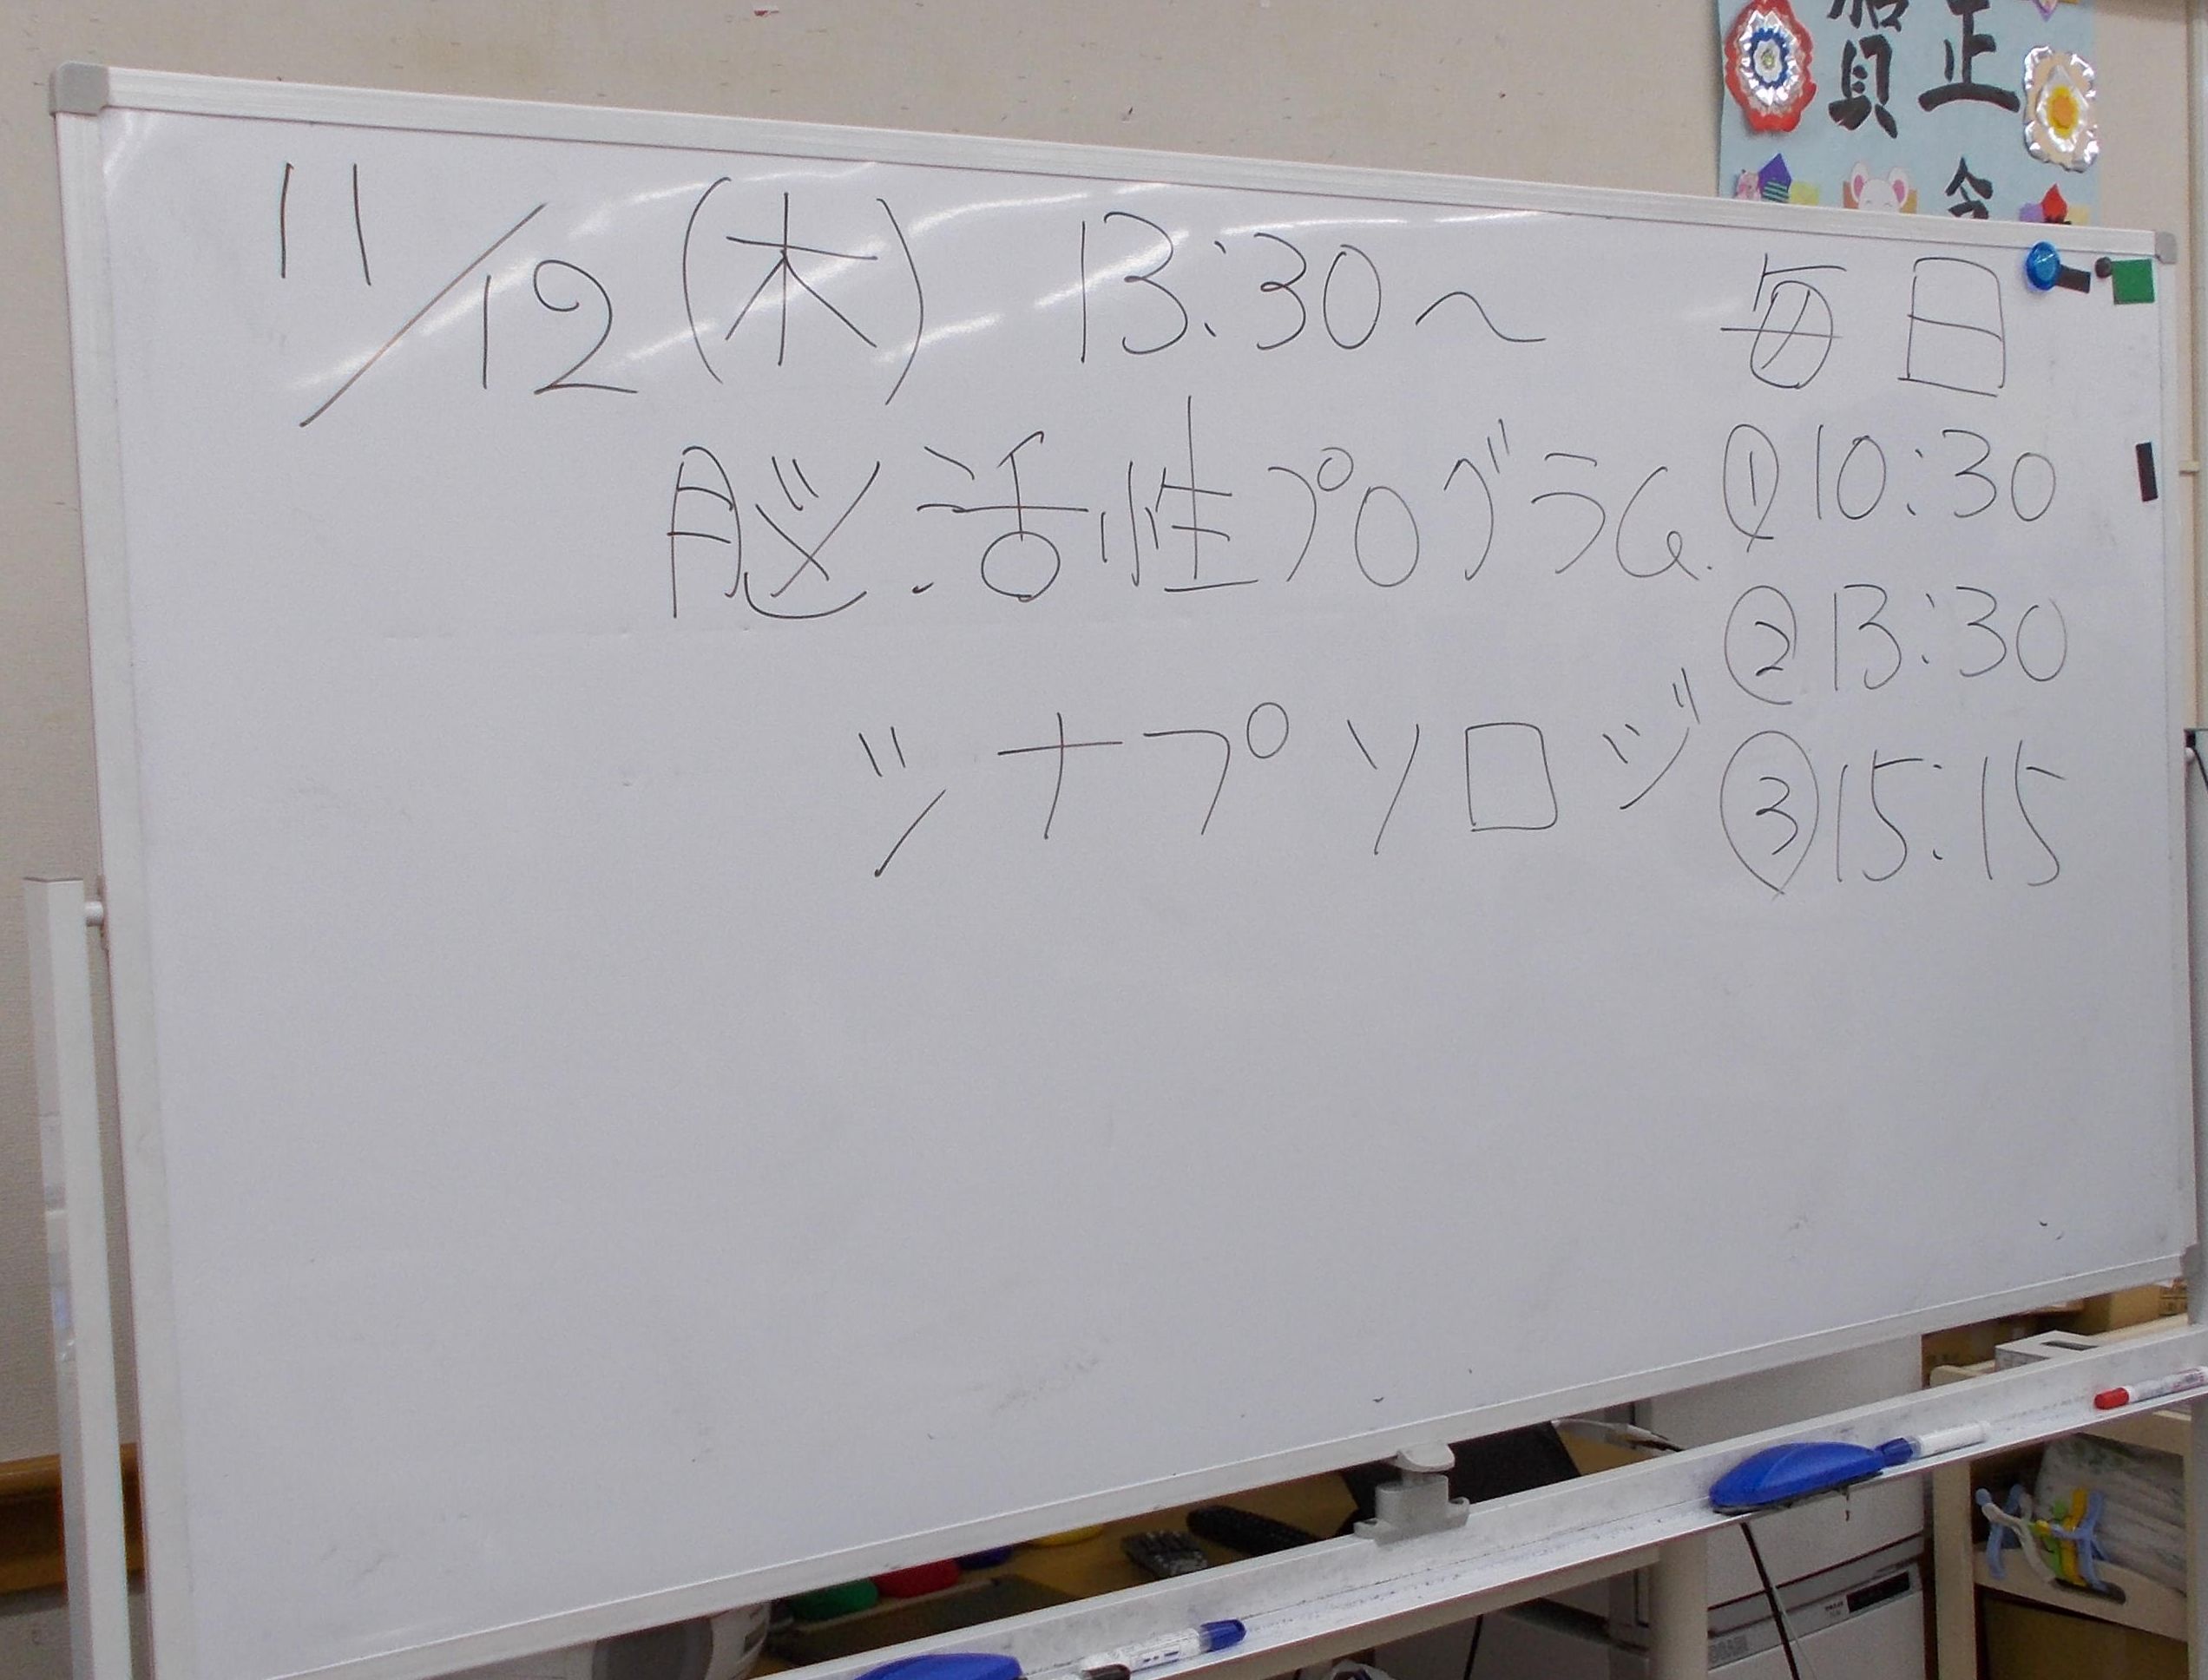 11/12(木) 13:30～
脳活性プログラム
シナプソロジ
毎日
①10:30
②13:30
③15:15
賀正